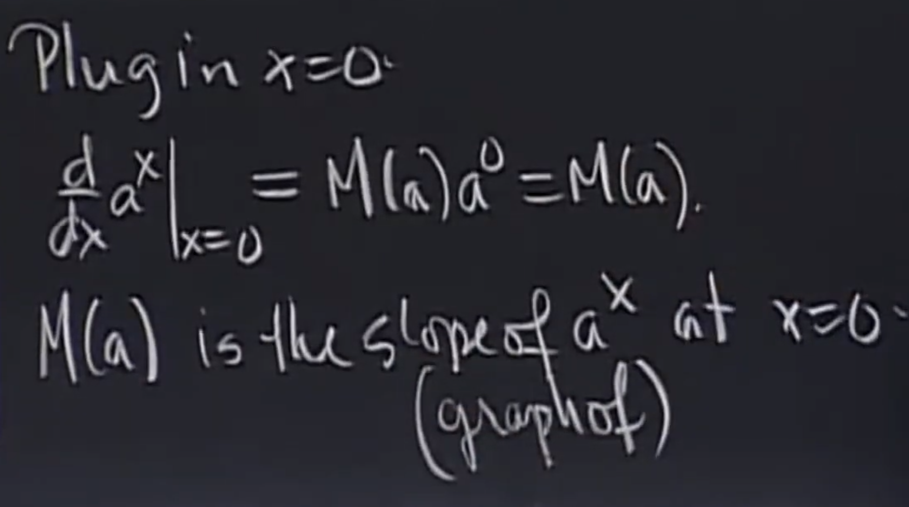 Plug in x=0.
d/dx a^x |_{x=0} = M(a) a^0 = M(a).
M(a) is the slope of a^x at x=0.
(graph of)